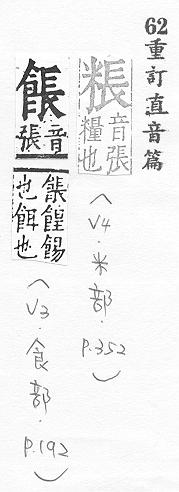 62重訂直音篇
粻音張
糧也
(V4.米部.P.352)
餦音
張
餦餭餳
也餌也
(V3.食部.P.192)